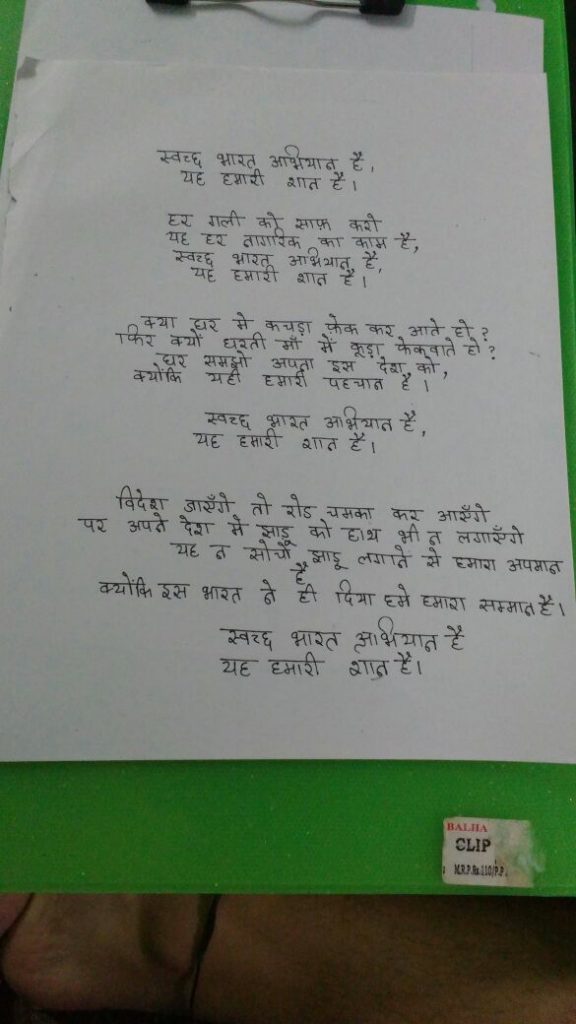 स्वच्छ भारत अभियान है,
यह हमारी शान है।
हर गली को साफ़ करो
यह हर नागरिक का काम है,
स्वच्छ भारत अभियान है,
यह हमारी शान है।
क्या घर मे कचड़ा फेक कर आते हो?
फिर क्यों धरती माँ में कूड़ा फेकवाते हो?
घर समझो अपना इस देश को,
क्योंकि यही हमारी पहचान है।
स्वच्छ भारत अभियान है,
यह हमारी शान है।
विदेश जाएँगे तो रोड चमका कर आएँगे
पर अपने देश मे झाडू को हाथ भी न लगाएँगे
यह न सोचों झाडू लगाने से हमारा अपमान
है
क्योंकि इस भारत ने ही दिया हमे हमारा सम्मान है।
स्वच्छ भारत अभियान है
यह हमारी शान है।
BALHA
CLIP
M.R.P.Rs.110/P.P.